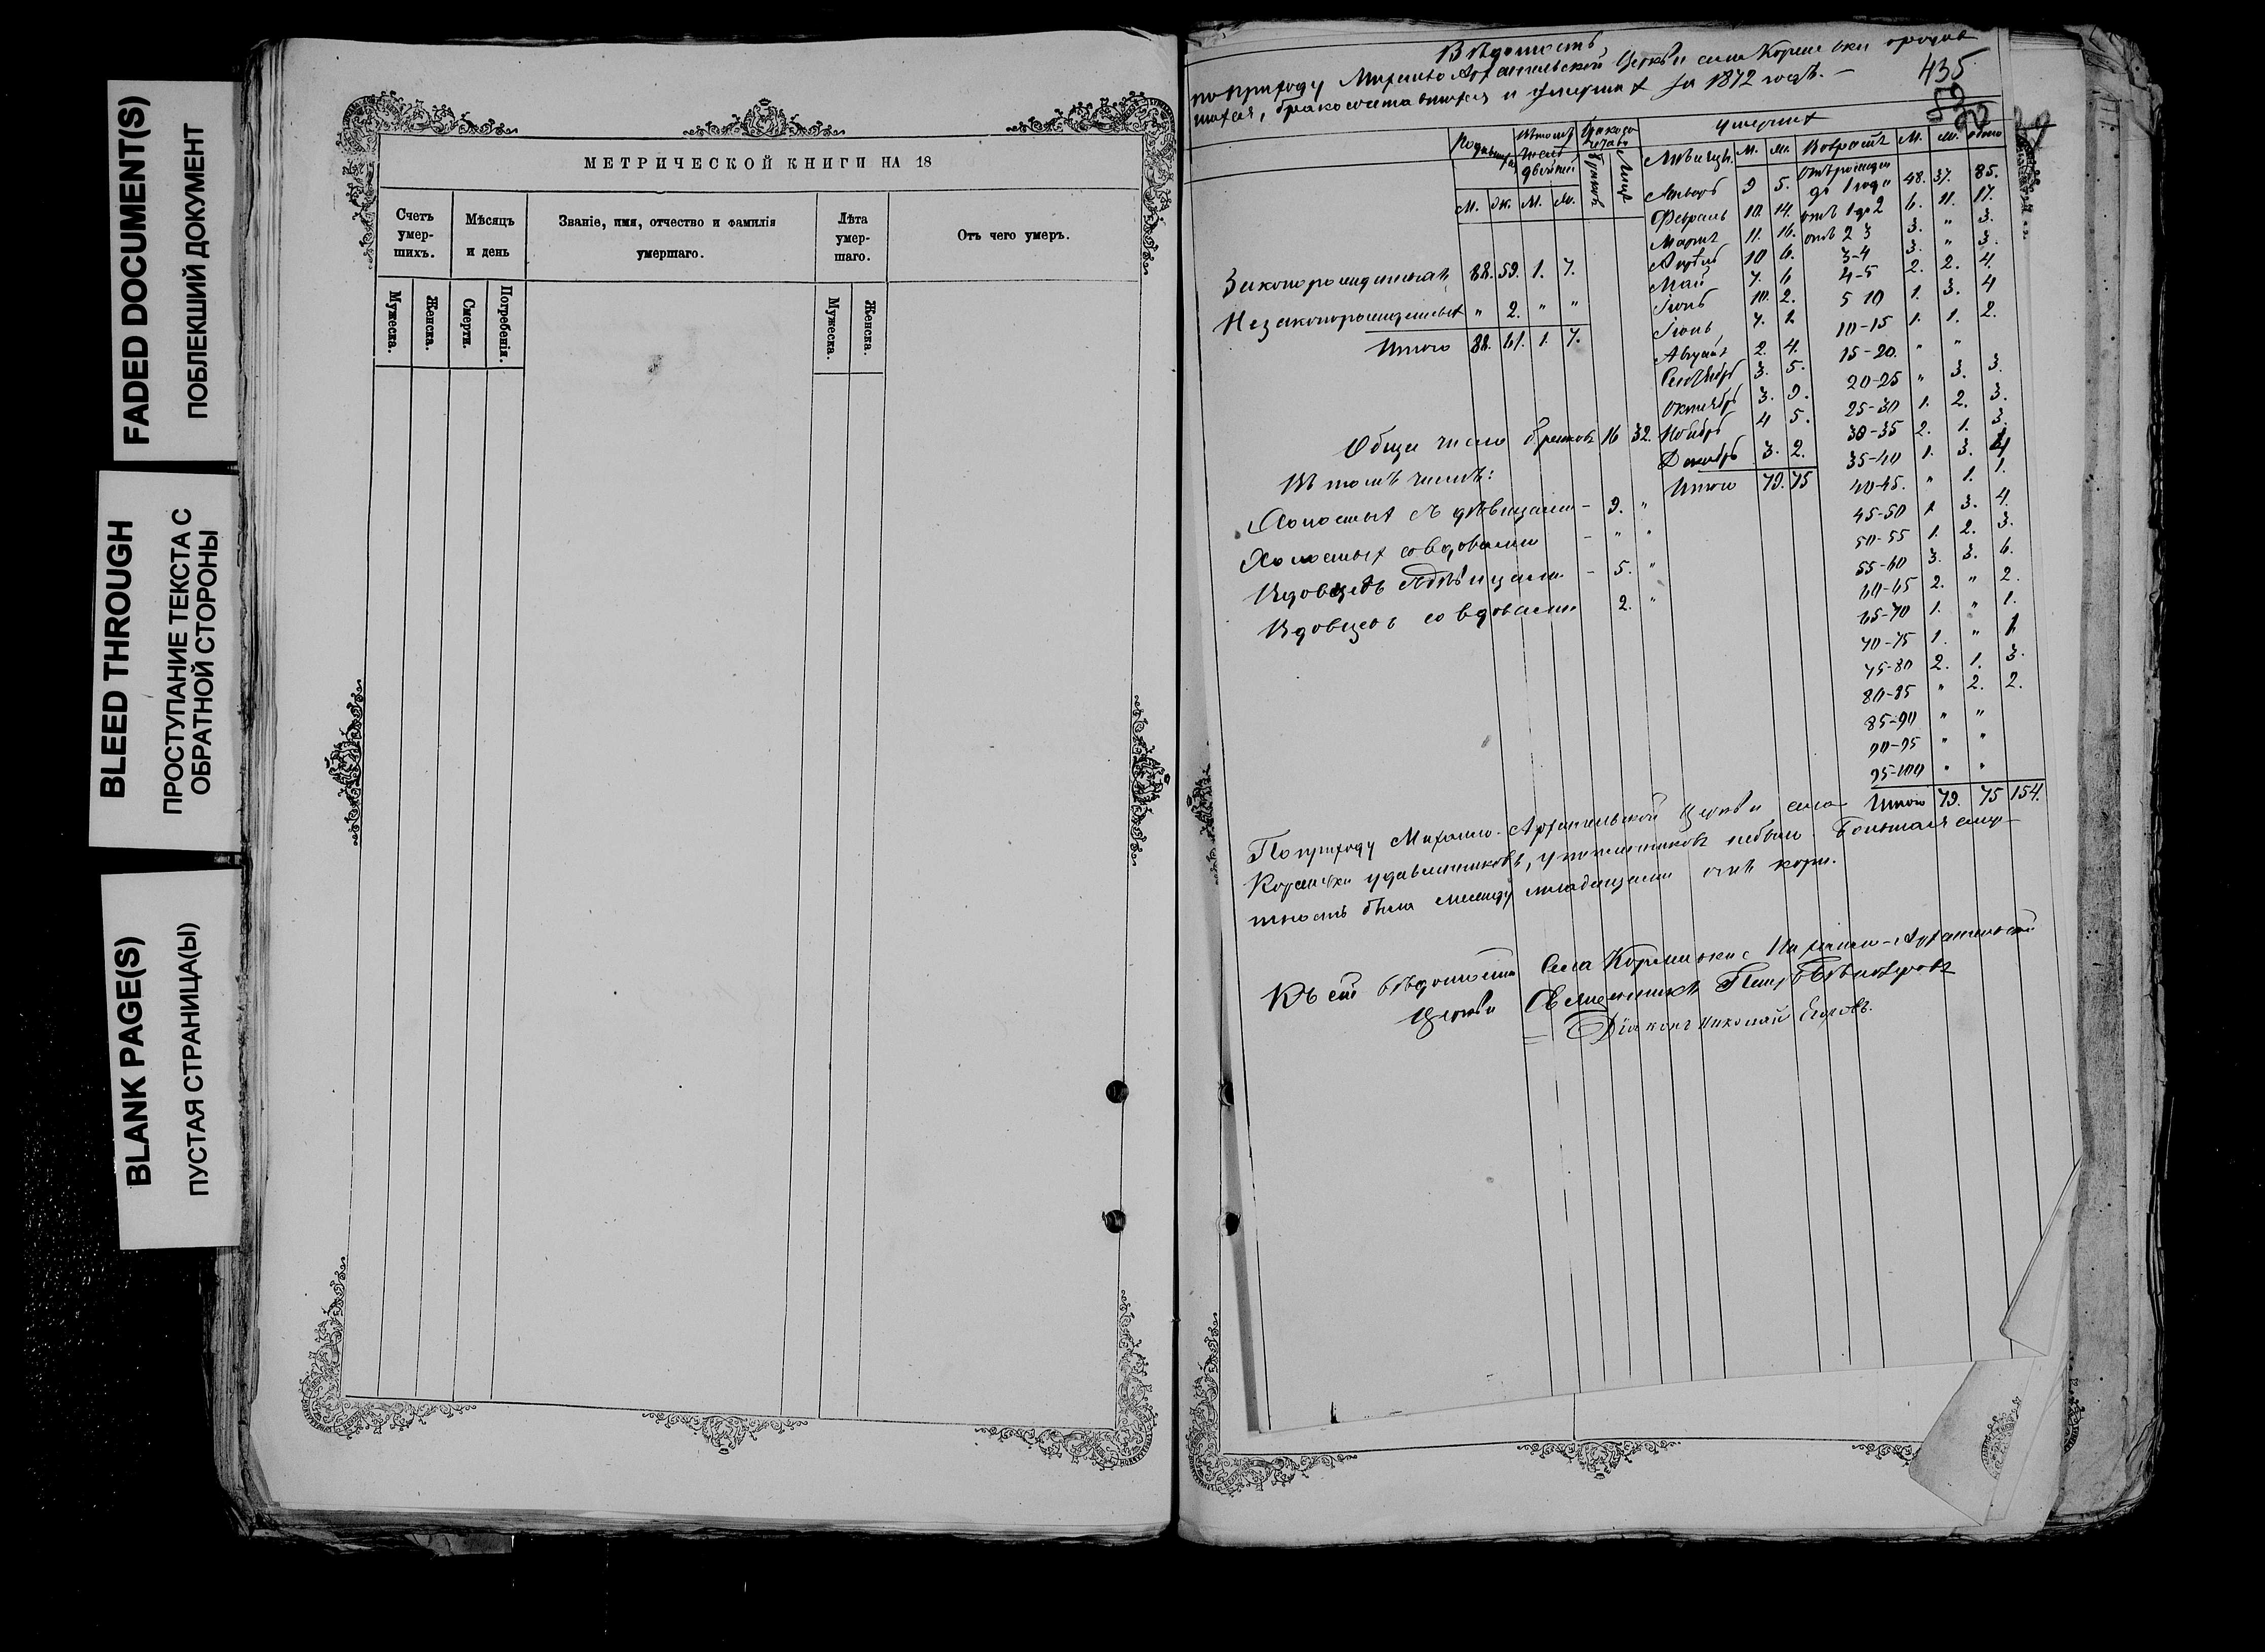 FADED DOCUMENT(S)
ПОБЛЕКШИЙ ДОКУМЕНТ
BLEED THROUGH
ПРОСТУПАНИЕ ТЕКСТА С
ОБРАТНОЙ СТОРОНЫ
BLANK PAGE(S)
ПУСТАЯ СТРАНИЦА(Ы)
МЕТРИЧЕСКОЙ КНИГИ НА 18
Счетъ умер-шихъ.
Мѣсяцъ и день
Званіе, имя, отчество и фамилія умершаго.
Лѣта умер-шаго.
Отъ чего умеръ.
Мужеска.
Женска.
Смерти.
Погребенія.
Мужеска.
Женска.
Вѣдомость,
по приходу Михаило Архангельской Церкви села
бракосочетавшихся и умершихъ за 1872 годъ. –
435
умершихъ
Мѣсяцы. М. Ж. Возрастъ М. Ж. обоего
М. Ж. М. Ж.
Январь 9 5. отъ рожденія до 1 года 48. 37. 85.
Февраль 10. 14. отъ 1 до 2 6. 11. 17.
Мартъ 11. 16. отъ 2 3 3. " 3.
Апрѣль 10 6. 3-4 3. " 3.
Май 7. 6 4-5 2. 2. 4.
Іюнь 10. 2. 5 10 1. 3. 4
Іюль 7. 1 10-15 1. 1. 2.
Августъ 2. 4. 15-20. " "
Сентябрь 3. 5. 20-25 " 3. 3.
Октябрь 3. 9. 25-30 1. 2. 3.
Ноябрь 4 5. 30-35 2. 1. 3.
Декабрь 3. 2. 35-40 1. 3. 4
Итого 79. 75 40-45. " 1. 1.
45-50 1 3. 4.
50-55 1. 2. 3.
55-60 3. 3. 6.
60-65 2. " 2.
65-70 1. " 1.
70-75 1. " 1
75-80 2. 1. 3.
80-85 " 2. 2.
85-90 " "
90-95 " "
95-100 " "
Итого 79. 75 154.
Законорожденныхъ 88. 59. 1. 7.
Незаконорожденныхъ " 2. " "
Итого 88. 61. 1. 7.
Общее число браковъ 16 32.
Въ томъ числѣ:
Холостыхъ съ дѣвицами – 9. "
Холостыхъ со вдовами – " "
Вдовцевъ съ дѣвицами – 5. "
Вдовцевъ со вдовами 2. "
По приходу Михаило-Архангельской Церкви села
удавленниковъ, утопленниковъ небыло. Большая смер-
тность была между младенцами отъ кори.
Къ сей вѣдомости Села Михаило-Архангельской
Церкви Священникъ
Діаконъ Николай Егоровъ.